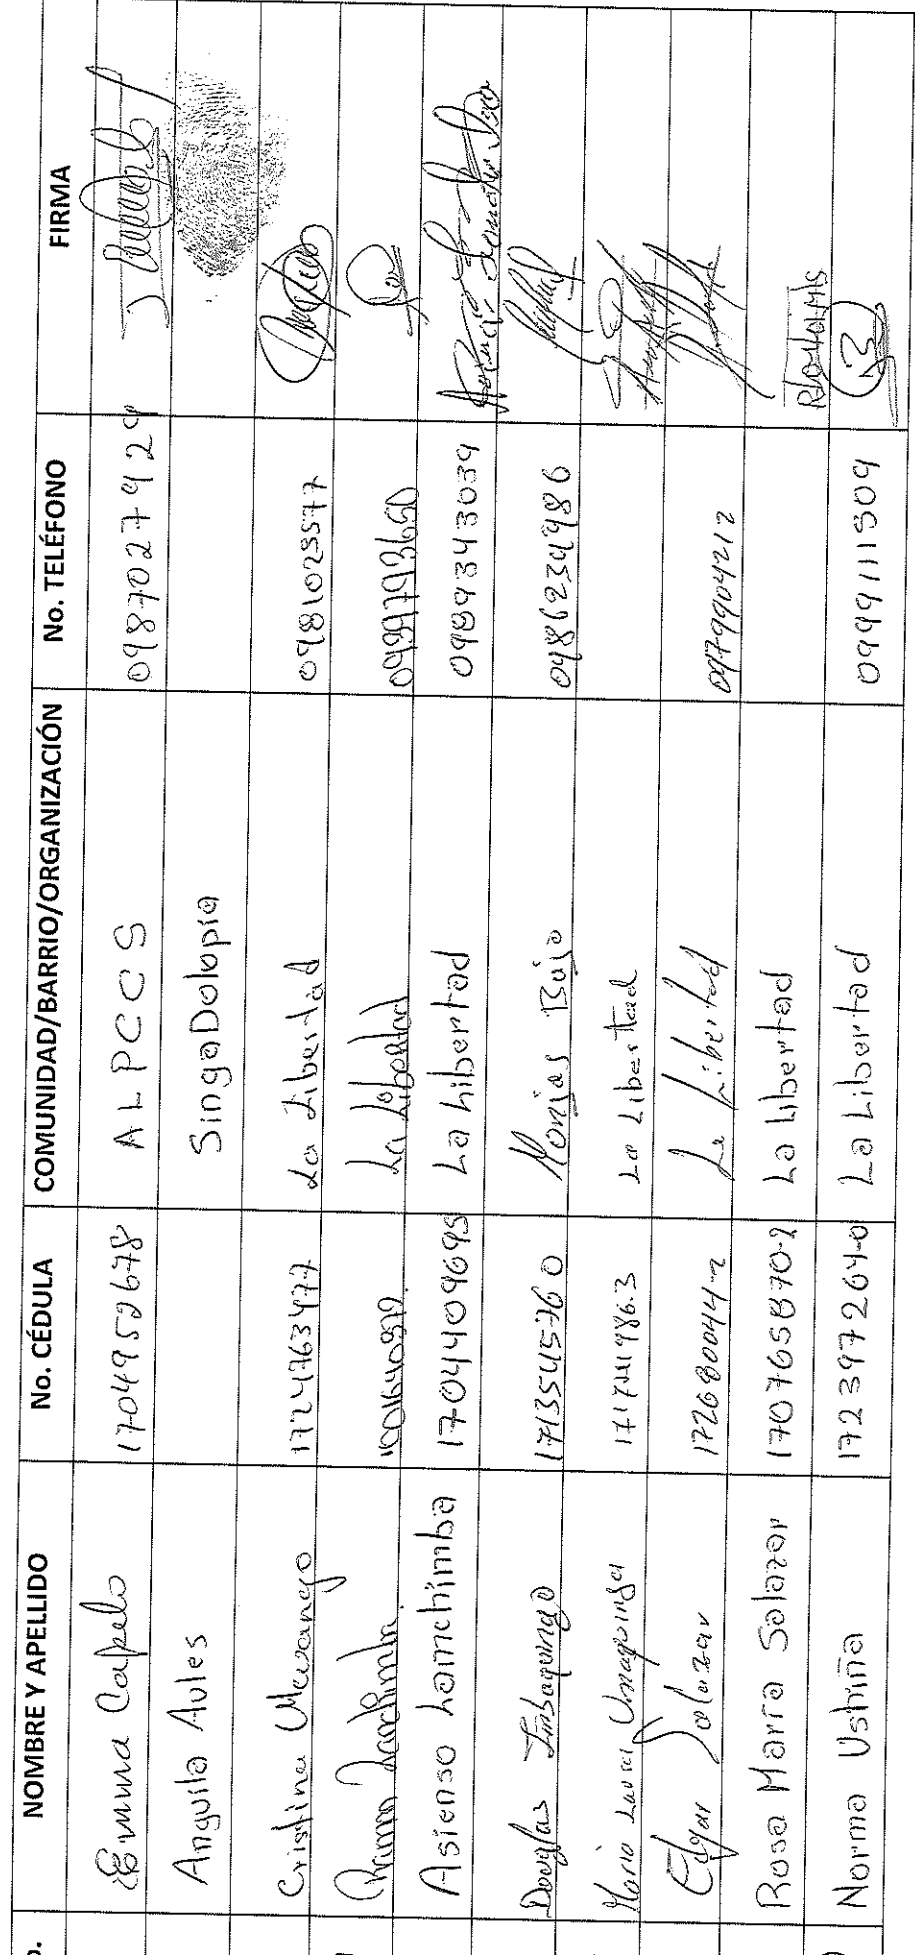 NOMBRE Y APELLIDO No. CÉDULA COMUNIDAD/BARRIO/ORGANIZACIÓN No. TELÉFONO FIRMA
Emma Capelo 1704952678 ALPCCS 0987027929
Anguila Aules SingaDolopia
Cristina 1724763477 La Libertad 0981023577
La Libertad
Asienso Lanchimba 1704409695 La Libertad 0989343039
Douglas Imbaquingo 1713545760 Monjas Bajo 0986234986
Maria Laura La Libertad
Edgar Salazar 172680044-2 La Libertad 0979904212
Rosa María Salazar 170765870-2 La Libertad
Norma Ushiña 172397264-0 La Libertad 0999111509